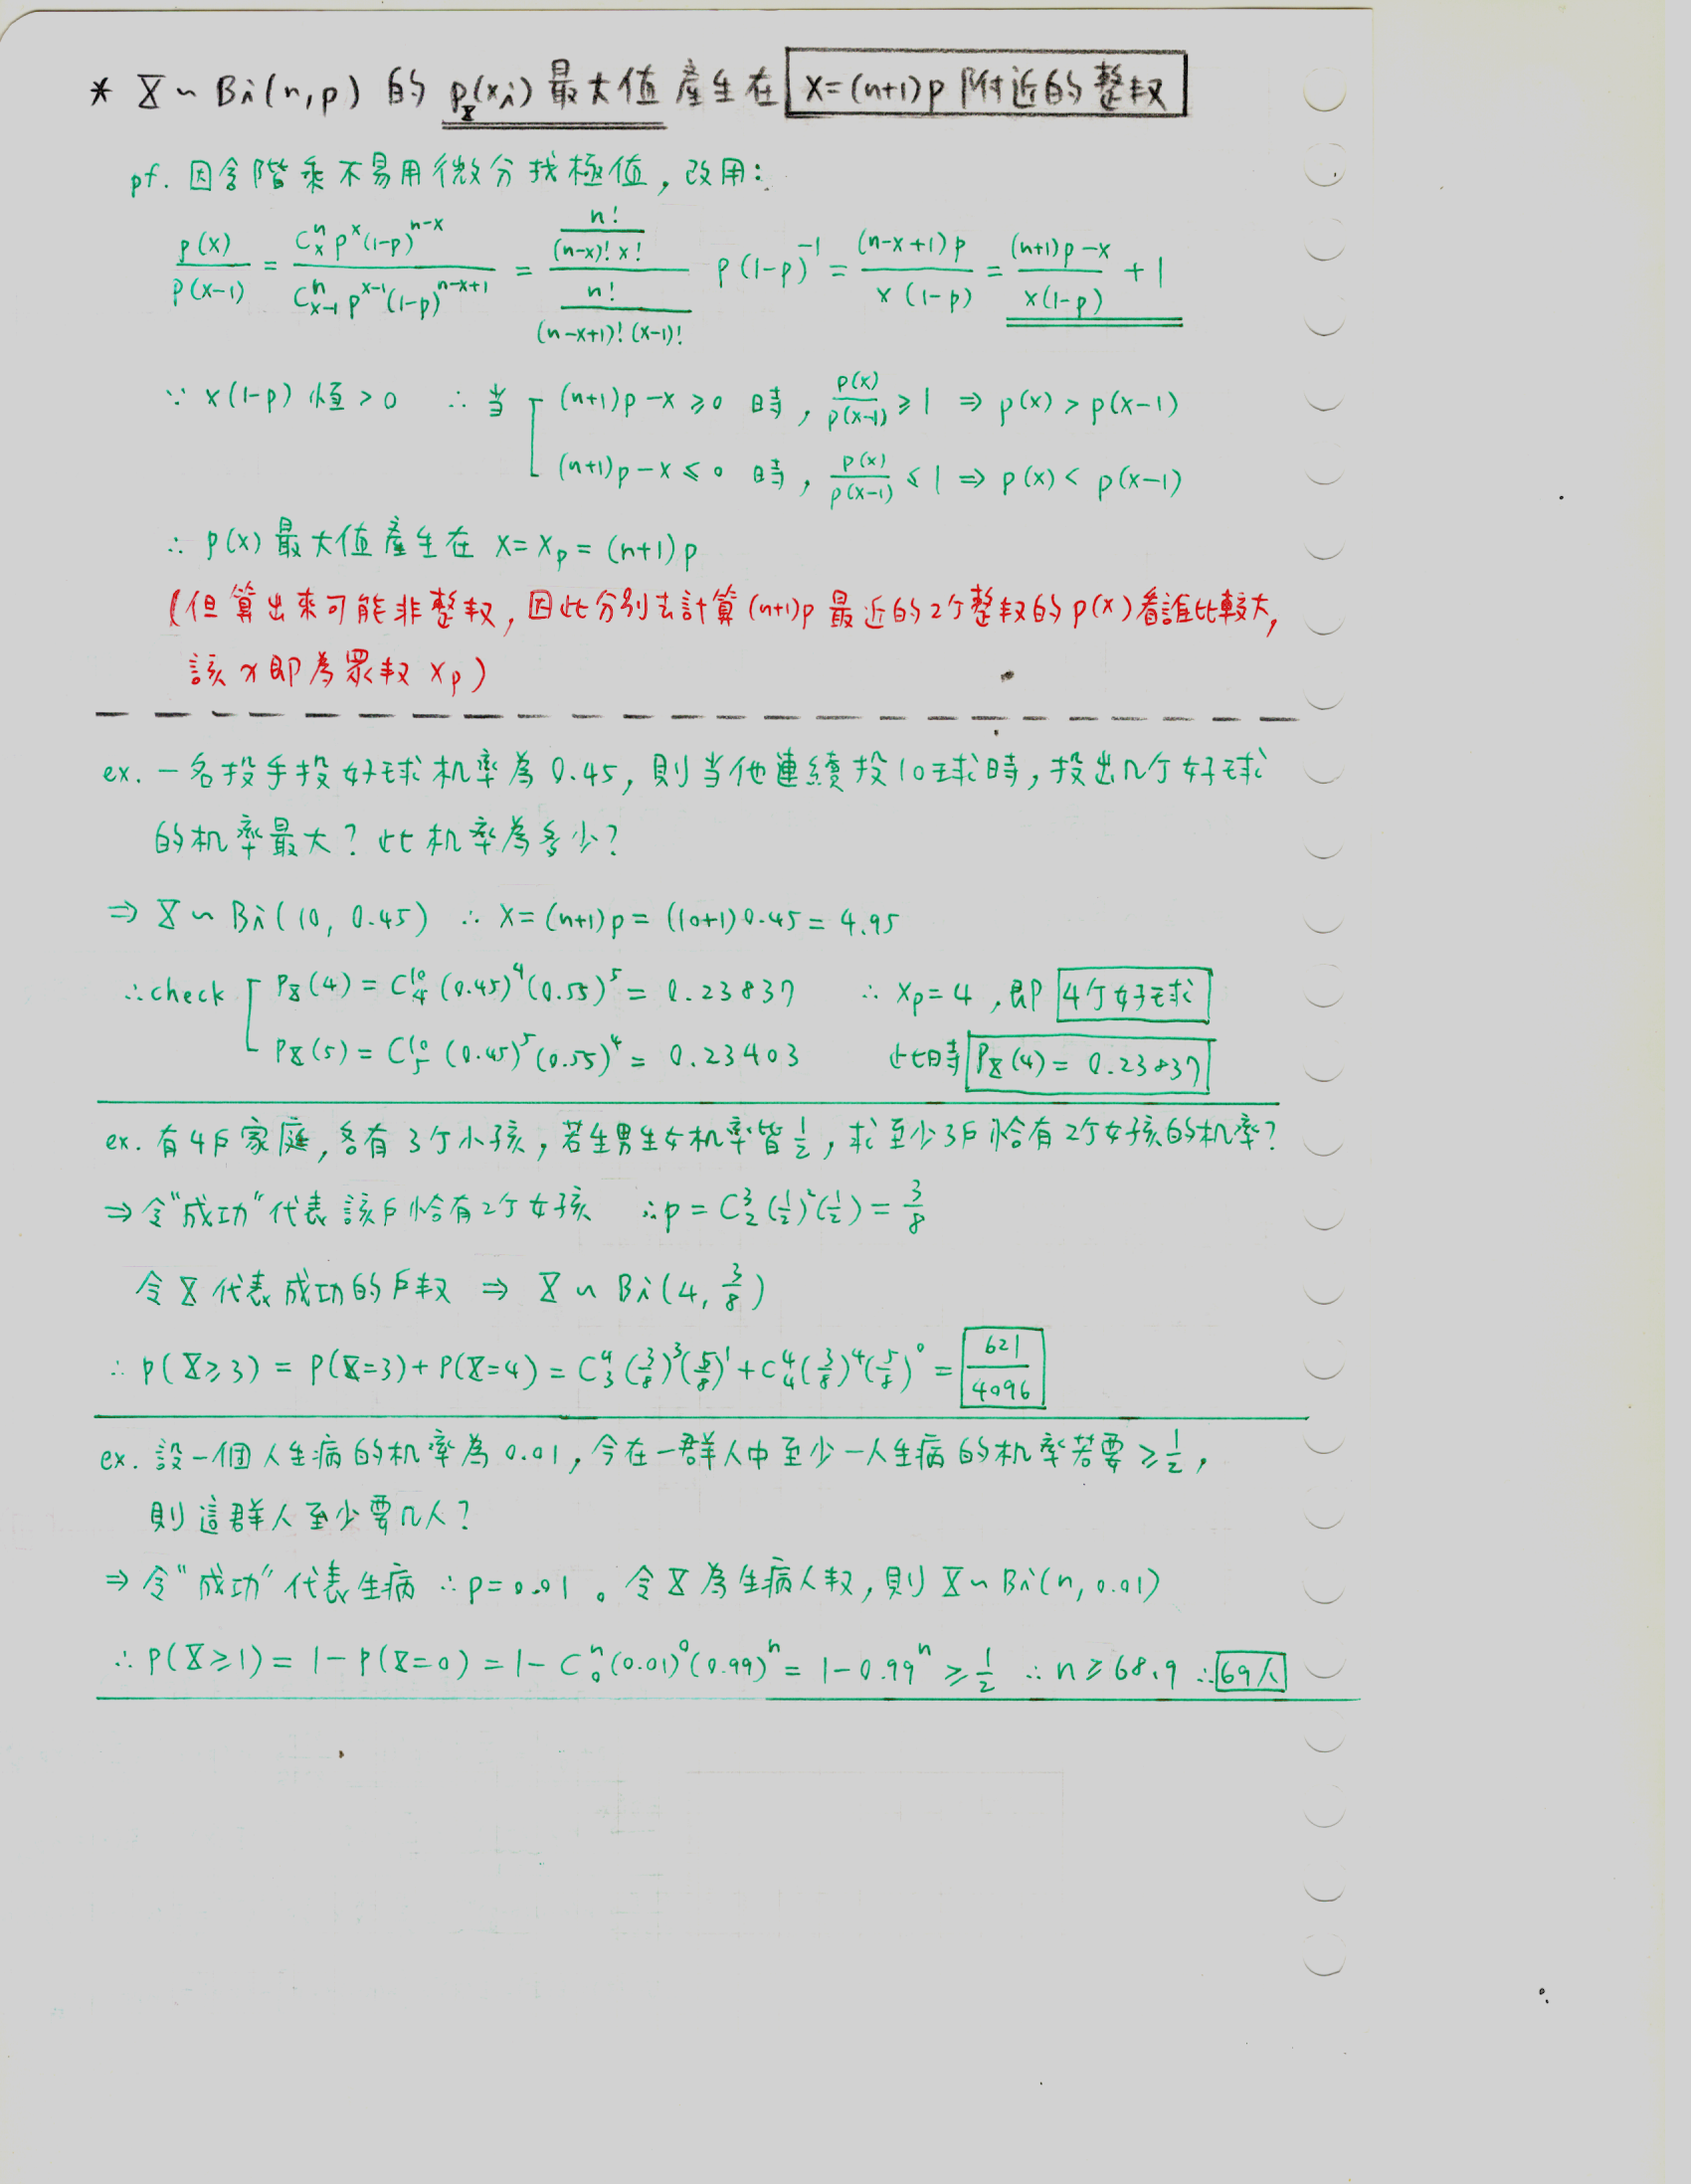 * X ~ Bi(n,p) 的 p_X(xi) 最大值產生在 x=(n+1)p 附近的整数
pf. 因含階乘不易用微分找極值, 改用:
p(x)/p(x-1) = C^n_x p^x (1-p)^(n-x) / C^n_(x-1) p^(x-1) (1-p)^(n-x+1) = [n!/((n-x)! x!)] / [n!/((n-x+1)! (x-1)!)] p(1-p)^-1 = (n-x+1)p / x(1-p) = ((n+1)p-x) / x(1-p) + 1
∵ x(1-p) 恒>0 ∴ 当 (n+1)p-x ≥ 0 時, p(x)/p(x-1) ≥ 1 ⇒ p(x) > p(x-1)
(n+1)p-x ≤ 0 時, p(x)/p(x-1) ≤ 1 ⇒ p(x) < p(x-1)
∴ p(x) 最大值產生在 x=x_p=(n+1)p
(但算出來可能非整数, 因此分別去計算(n+1)p 最近的2个整数的p(x)看誰比較大,
該x即為眾数 x_p)
ex. 一名投手投好球机率為0.45, 則当他連續投10球時, 投出几个好球
的机率最大? 此机率為多少?
⇒ X ~ Bi(10, 0.45) ∴ x=(n+1)p = (10+1)0.45 = 4.95
∴check P_X(4) = C^10_4 (0.45)^4 (0.55)^5 = 0.23837 ∴ x_p=4, 即 4个好球
P_X(5) = C^10_5 (0.45)^5 (0.55)^4 = 0.23403 此時 P_X(4) = 0.23837
ex. 有4戶家庭, 各有3个小孩, 若生男生女机率皆1/2, 求至少3戶恰有2个女孩的机率?
⇒ 令"成功"代表該戶恰有2个女孩 ∴p = C^3_2 (1/2)^2 (1/2) = 3/8
令X代表成功的戶数 ⇒ X ~ Bi(4, 3/8)
∴ p(X≥3) = P(X=3)+P(X=4) = C^4_3 (3/8)^3 (5/8)^1 + C^4_4 (3/8)^4 (5/8)^0 = 621/4096
ex. 設一個人生病的机率為0.01, 今在一群人中至少一人生病的机率若要 ≥ 1/2,
則這群人至少要几人?
⇒ 令"成功"代表生病 ∴p=0.01。令X為生病人数, 則 X ~ Bi(n, 0.01)
∴ P(X≥1) = 1-P(X=0) = 1-C^n_0 (0.01)^0 (0.99)^n = 1-0.99^n ≥ 1/2 ∴ n ≥ 68.9 ∴ 69人